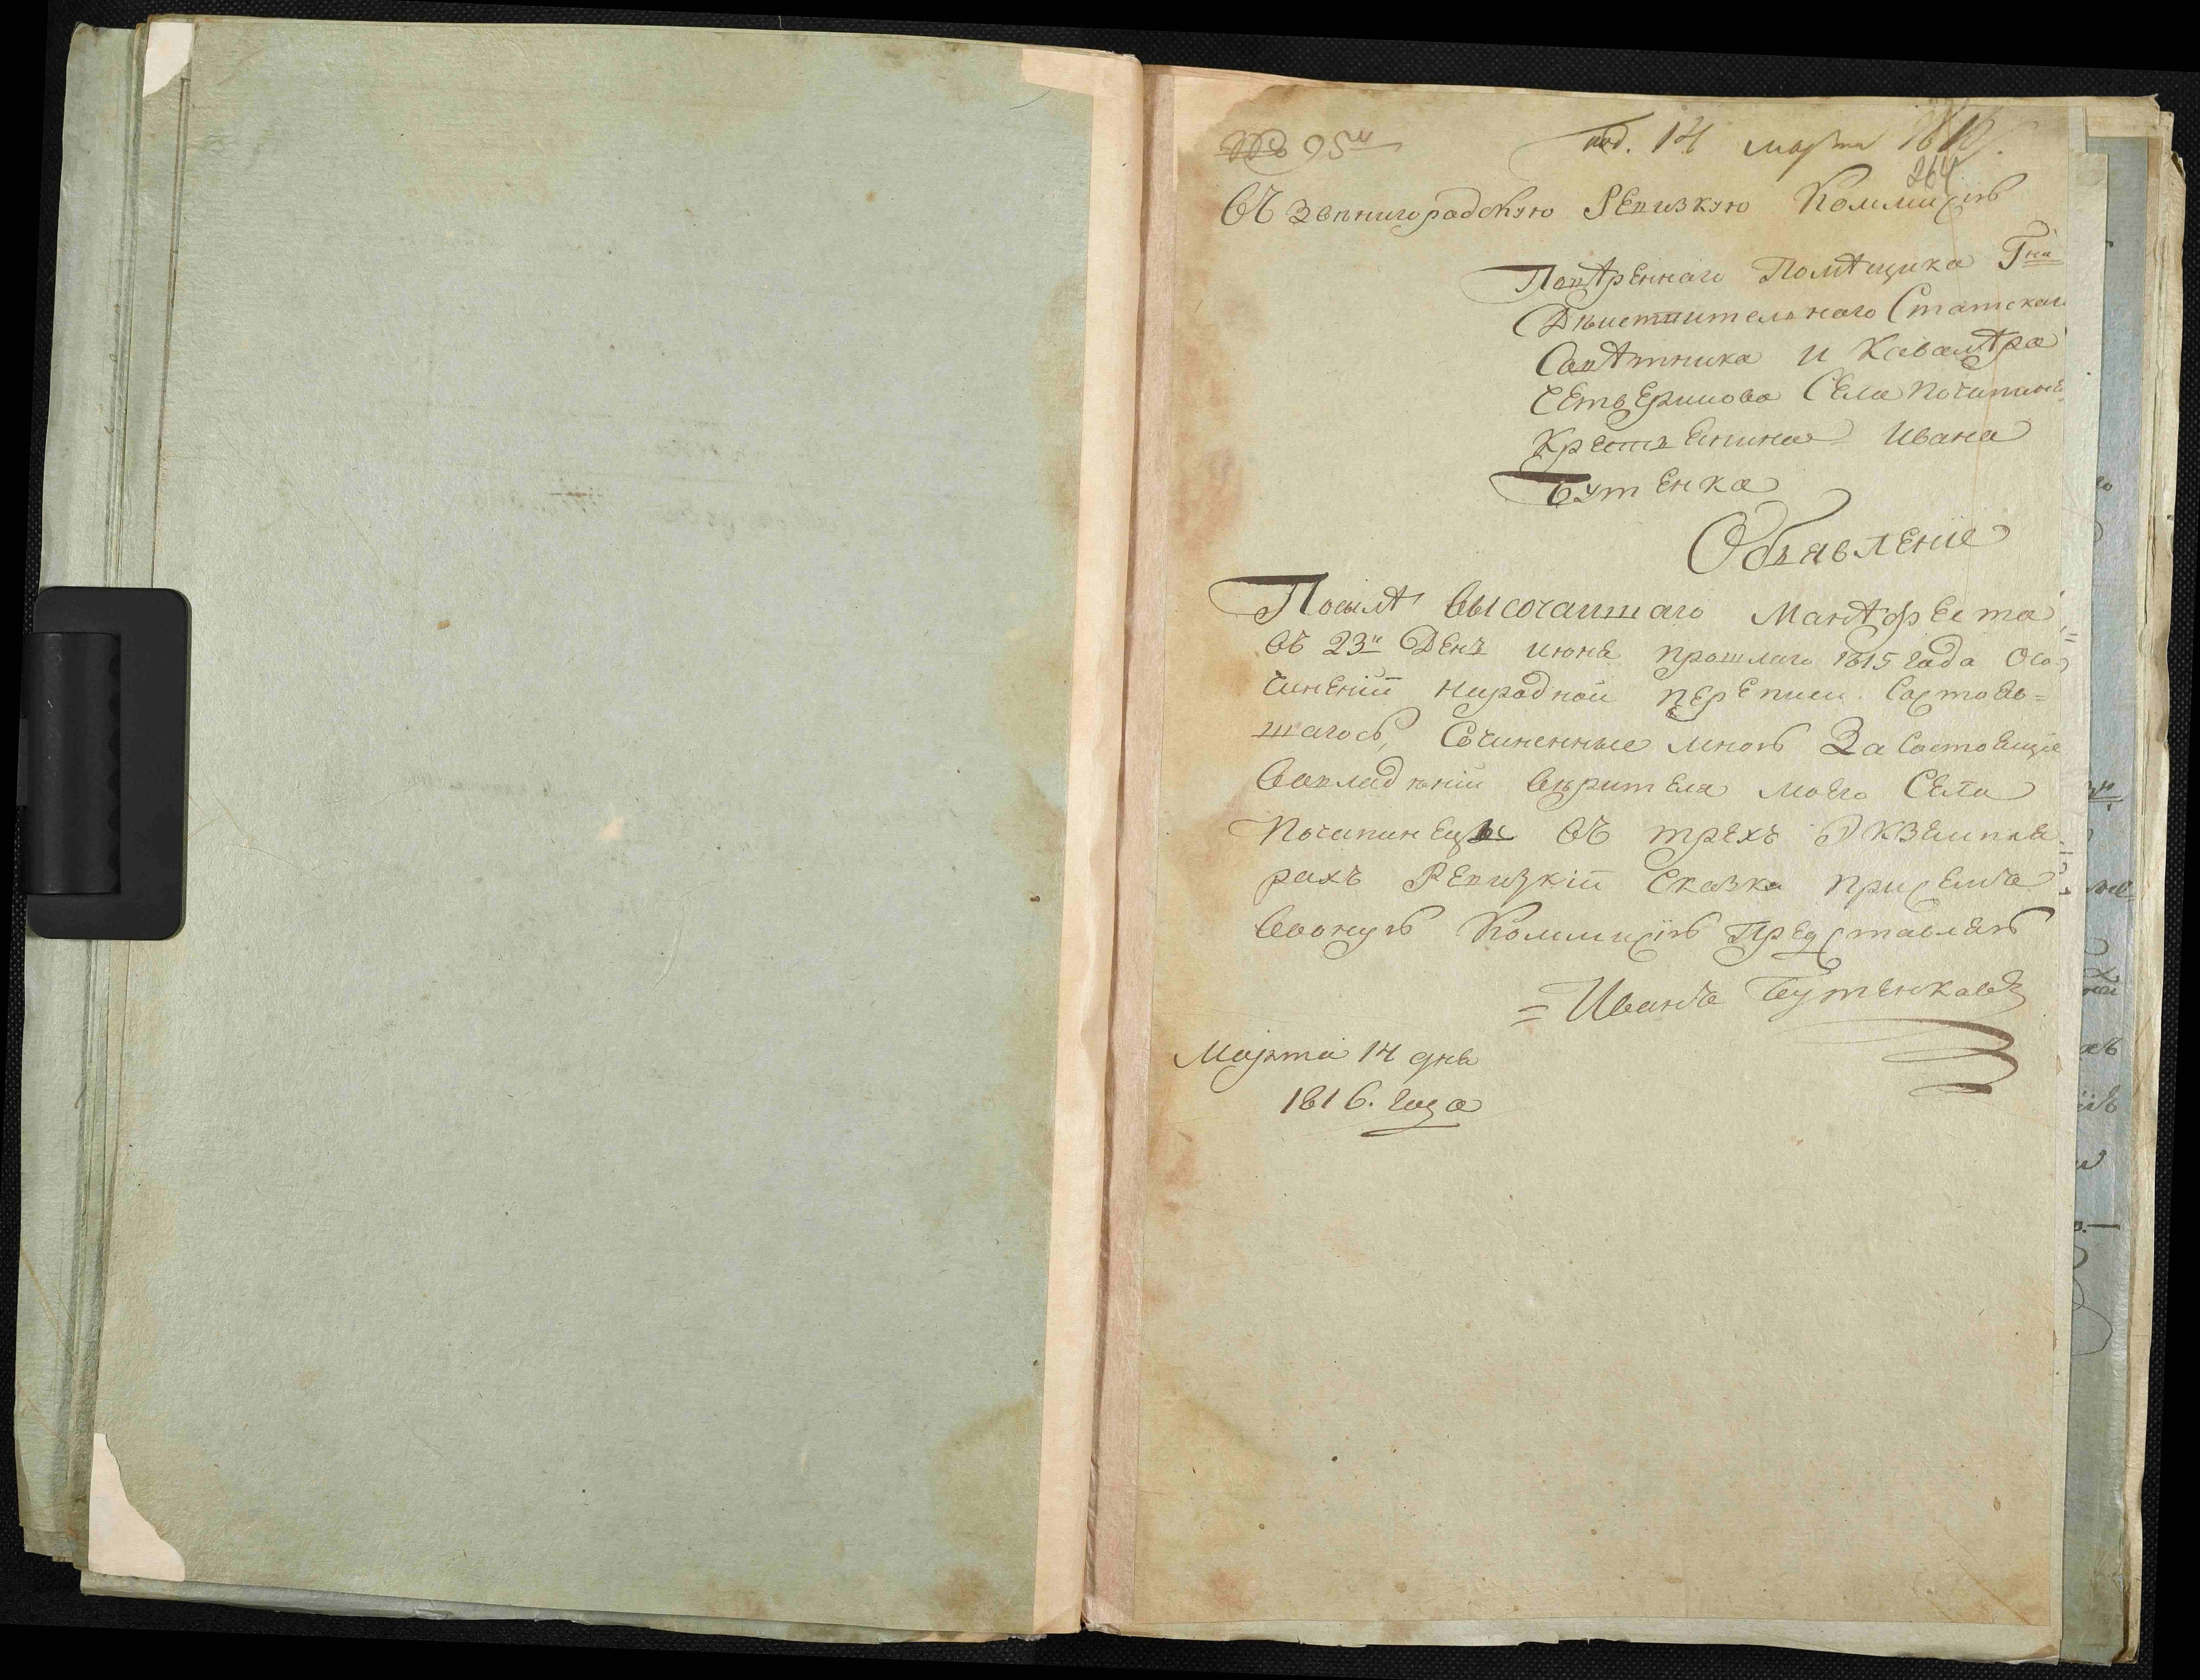 № 95й
под. 14 марта 1816
264
Въ Звѣнигорадскую Ревизкую Коммисію
Повѣреннаго Помѣщика Гна
Дѣиствительнаго Статскаго
Совѣтника и Кавалѣра
Четверикова Села Почапинѣ
Крестьенина Ивана
Бутенка
Объявленіе
Посылѣ Высочаишаго Манѣфеста
въ 23й День июня прошлаго 1815 года Осо
чиненіи народнои переписи состояв=
шагось, Сочиненные мною За Состоящіе
Вовладѣніи вѣрителя моего Села
Почапинецъ въ трехъ Экземпля
рахъ Ревизкіи Сказки присемъ
Вооную Коммисію Представляю
= Иванъ Бутенковъ
Марта 14 дня
1816. года